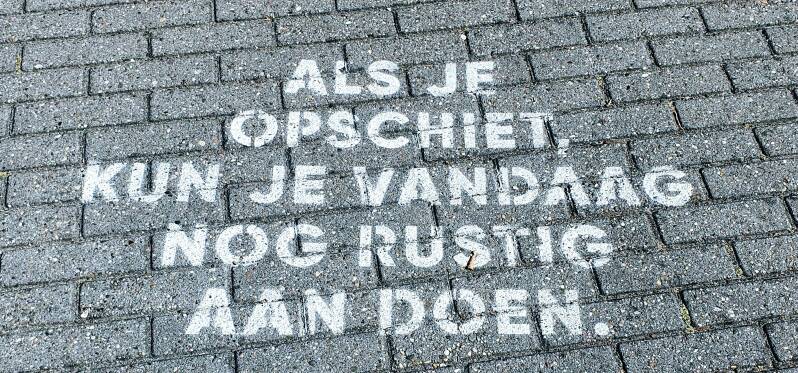 ALS JE
OPSCHIET,
KUN JE VANDAAG
NOG RUSTIG
AAN DOEN.